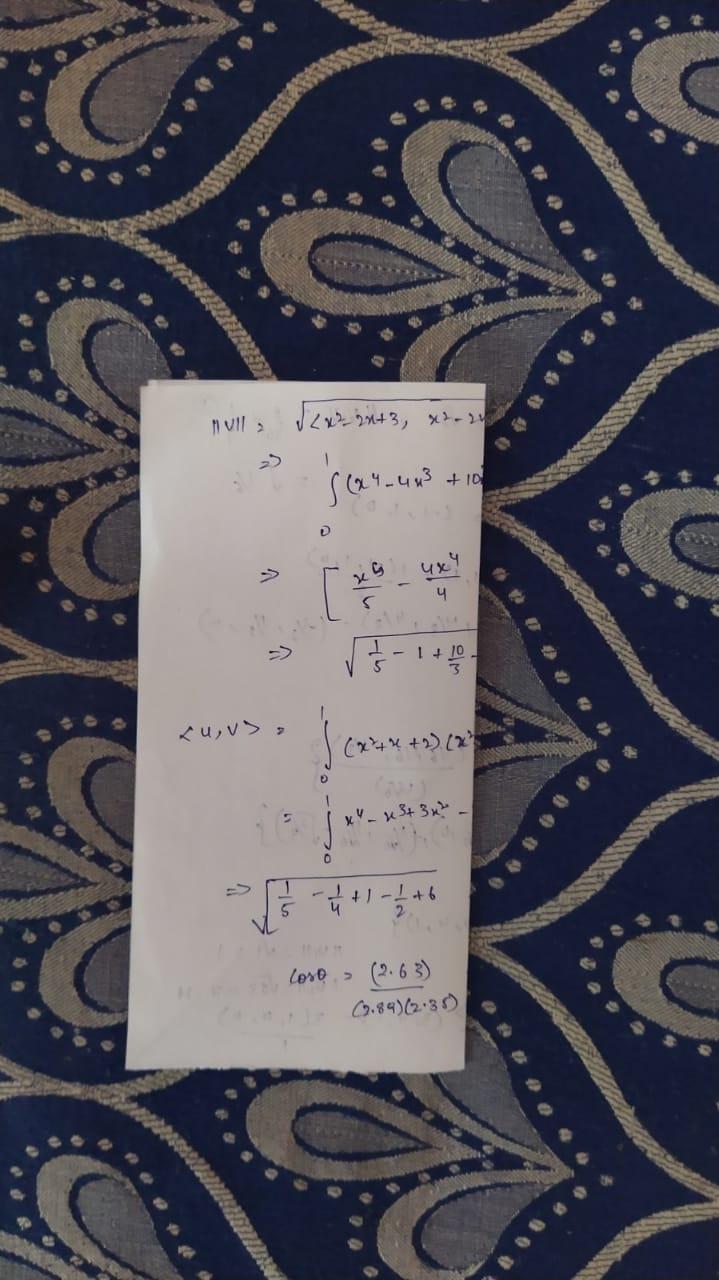 ||v|| = √<x²-2x+3, x²-2x
⇒ ∫₀¹ (x⁴-4x³ +10x
⇒ [ x⁵/5 - 4x⁴/4
⇒ √1/5 - 1 + 10/3 -
<u,v> = ∫₀¹ (x²+x+2) (x²
= ∫₀¹ x⁴ - x³+3x² -
⇒ √1/5 - 1/4 +1 - 1/2 +6
cosθ = (2.63)/(2.89)(2.35)